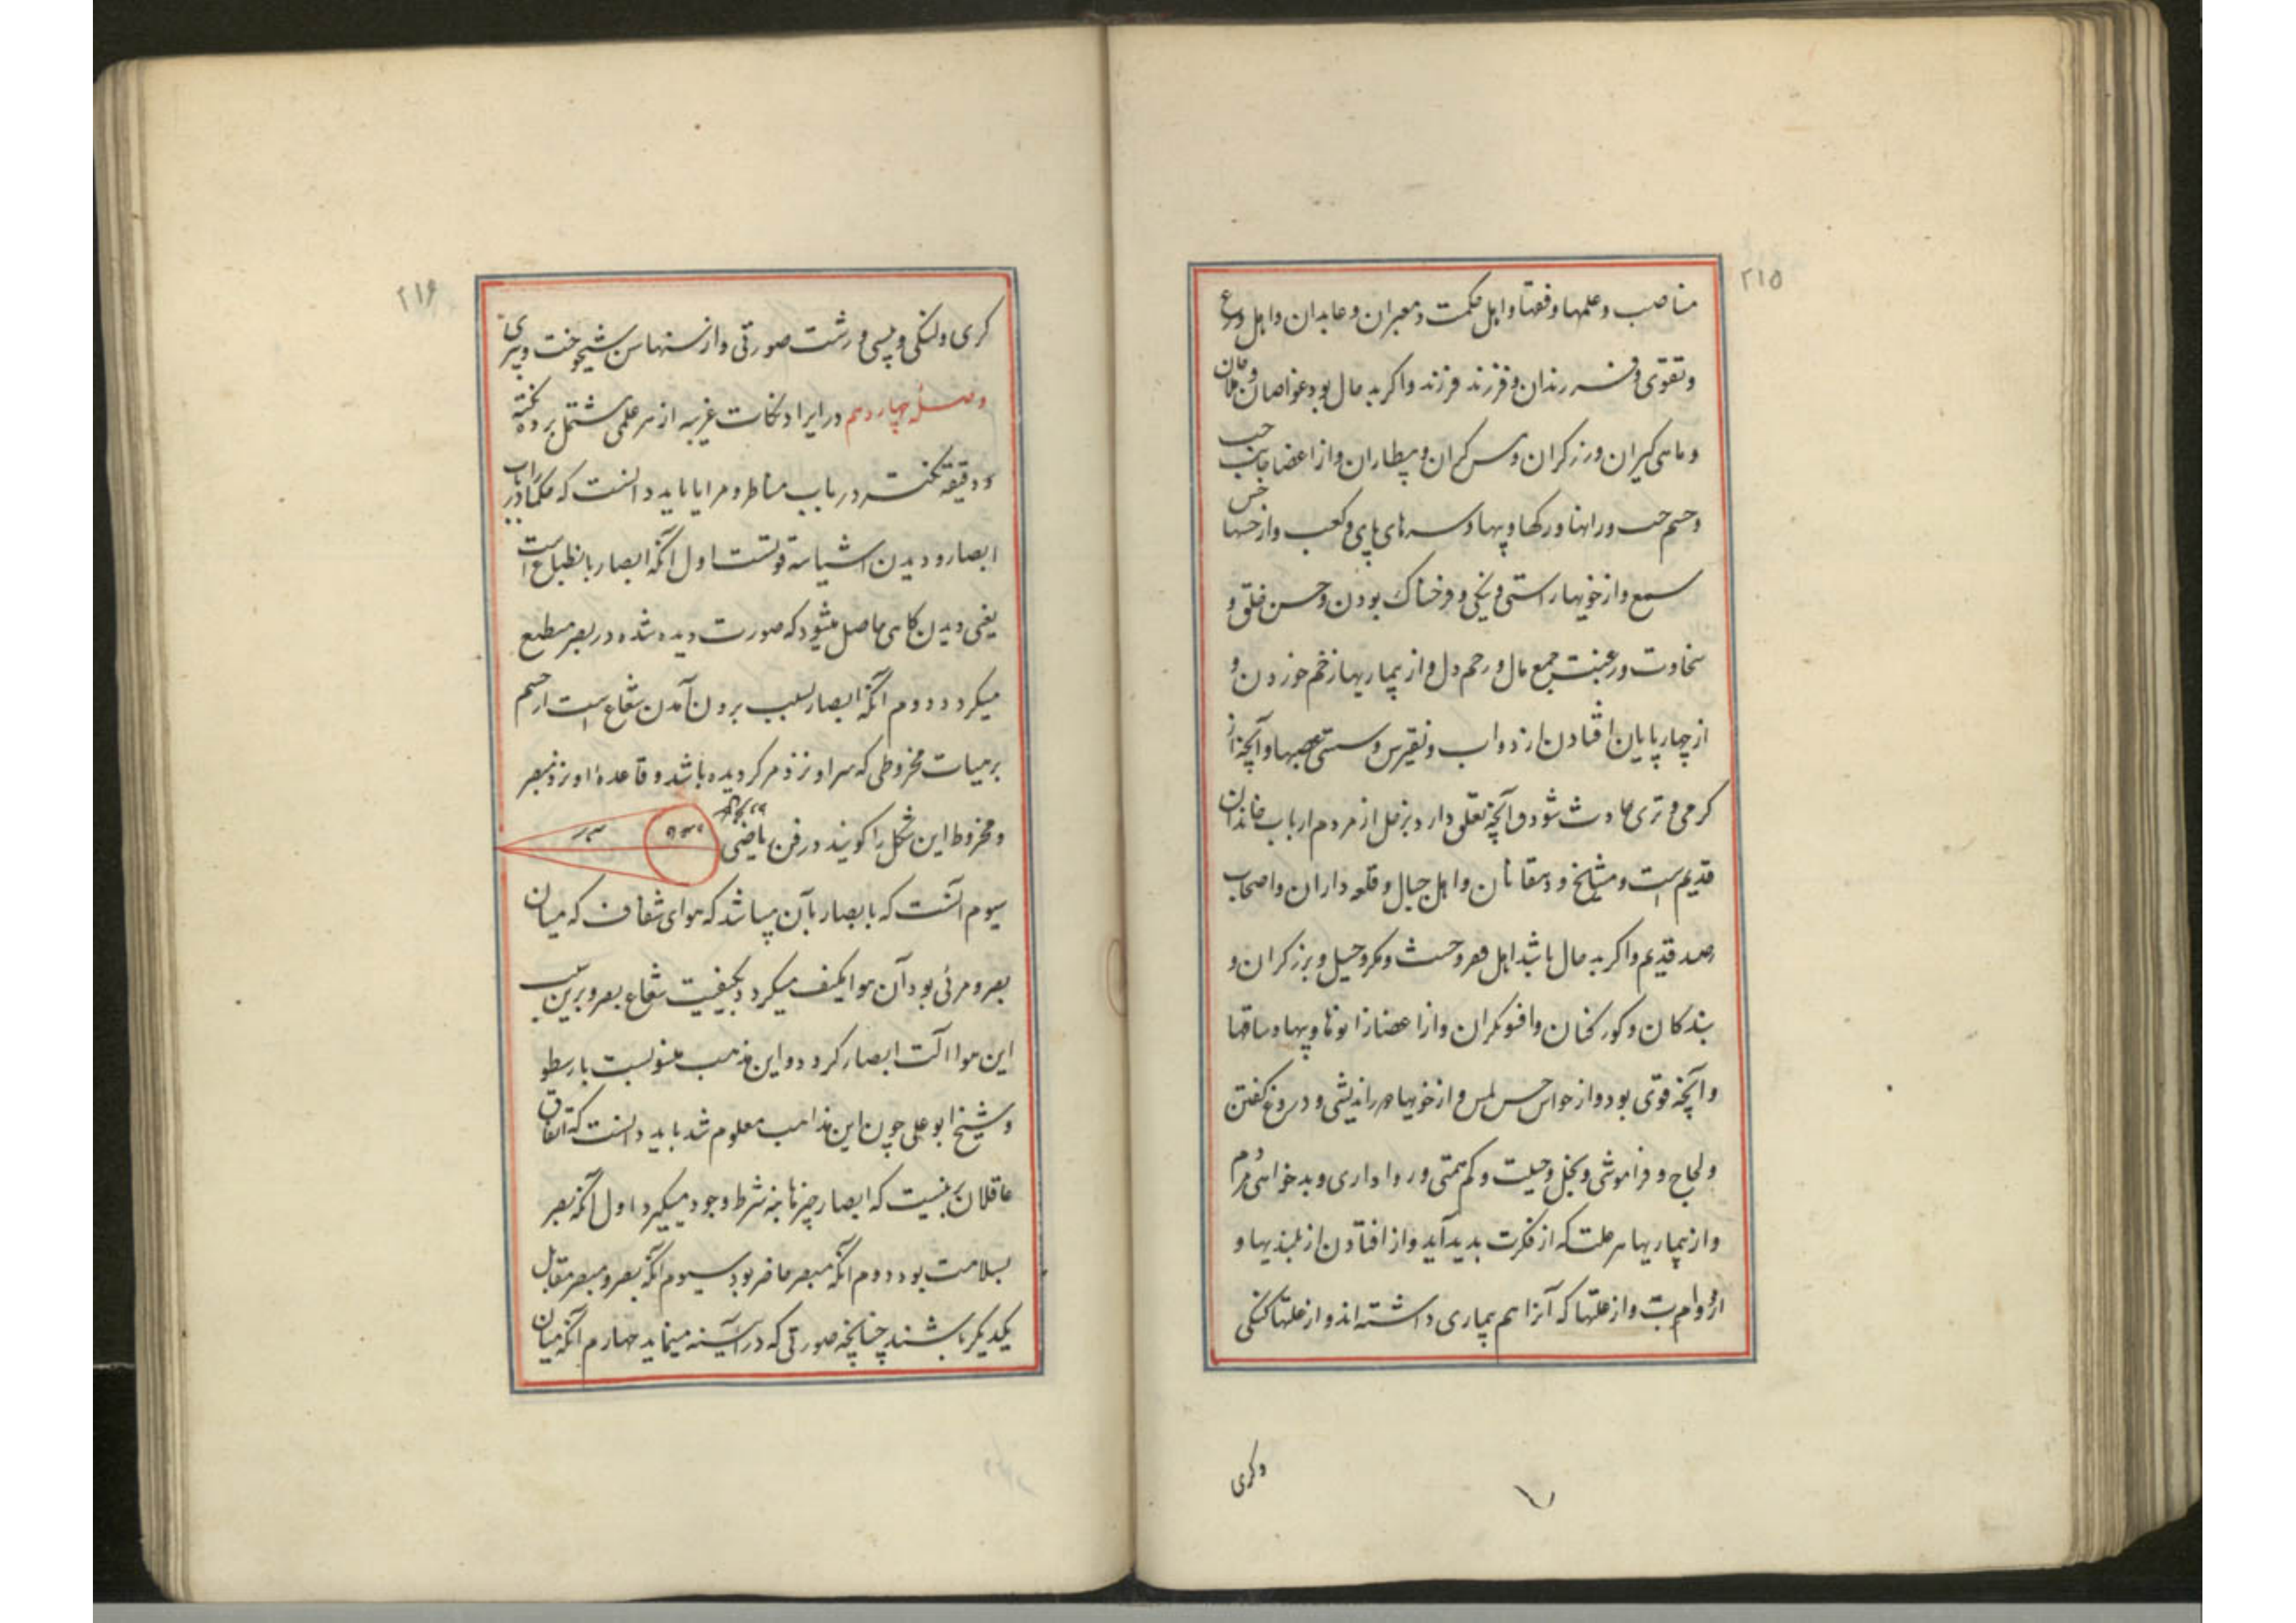 ۲۱۵
مناصب و علمها و فقها و اهل حکمت و معبران و عابدان و اهل ورع
و تقوی و فرزندان و فرزند فرزند و اگر بد حال بود غواصان و ملاحان
و ماهی گیران و زرگران و مس گران و بیطاران و از اعضا جانب
و چشم چپ و رانها و رگها و پیها و سرهای پای و کعب و از حسها حس
سمع و از خویها راستی و نیکی و فرخناک بودن و حسن خلق و
سخاوت و رغبت جمع مال و رحم دل و از بیماریها زخم خوردن و
از چهارپایان افتادن از دواب و نقرس و سستی عصبها و آنچه از
گرمی و تری حادث شود و آنچه تعلق دارد بزحل از مردم ارباب خاندان
قدیم است و مشایخ و دهقانان و اهل جبال و قلعه داران و اصحاب
رصد قدیم و اگر بد حال باشد اهل قهر و مکر و حیل و برزگران و
بندگان و گورکنان و افسونگران و از اعضا زانوها و پیها و ساقها
و آنچه قوی بود و از حواس حس لمس و از خویها دوراندیشی و دروغ گفتن
و لجاج و فراموشی و بخل و حیلت و کم همتی و رواداری و بدخواهی مردم
و از بیماریها هر علت که از فکرت بدید آید و از افتادن از بلندیها و
و از علتها که آنرا هم بیماری داشته اند و از علتها گنگی
و کری
۲۱۶
کری و لنگی و پیسی و زشت صورتی و از سنها سن شیخوخت و پیری
وصل چهاردهم در ایراد نکات غریبه از هر علمی مشتمل بر ده نکته
و دقیقه نکته در باب مناظر و مرایا باید دانست که حکما را در باب
ابصار و دیدن اشیا سه قولست اول آنکه ابصار بانطباع است
یعنی دیدن گاهی حاصل میشود که صورت دیده شده در بصر منطبع
میگردد دوم آنکه ابصار بسبب برون آمدن شعاع است از چشم
بر هیات مخروطی که سر او نزد مرکز دیده باشد و قاعده او نزد مبصر
و مخروط این شکل را گویند در فن ریاضی
سیوم آنست که ابصار بآن میباشد که هوای شفاف که میان
بصر و مرئی بود آن هوا مکیف میگردد بکیفیت شعاع بصر و برین سبب
این هوا آلت ابصار گردد و این مذهب منسوبست بارسطو
و شیخ ابو علی چون این مذاهب معلوم شد باید دانست که اتفاق
عاقلان برینست که ابصار چیزها بنه شرط وجود میگیرد اول آنکه بصر
بسلامت بود دوم آنکه مبصر حاضر بود سیوم آنکه بصر و مبصر مقابل
یکدیگر باشند چنانچه صورتی که در آینه مینماید چهارم آنکه میان